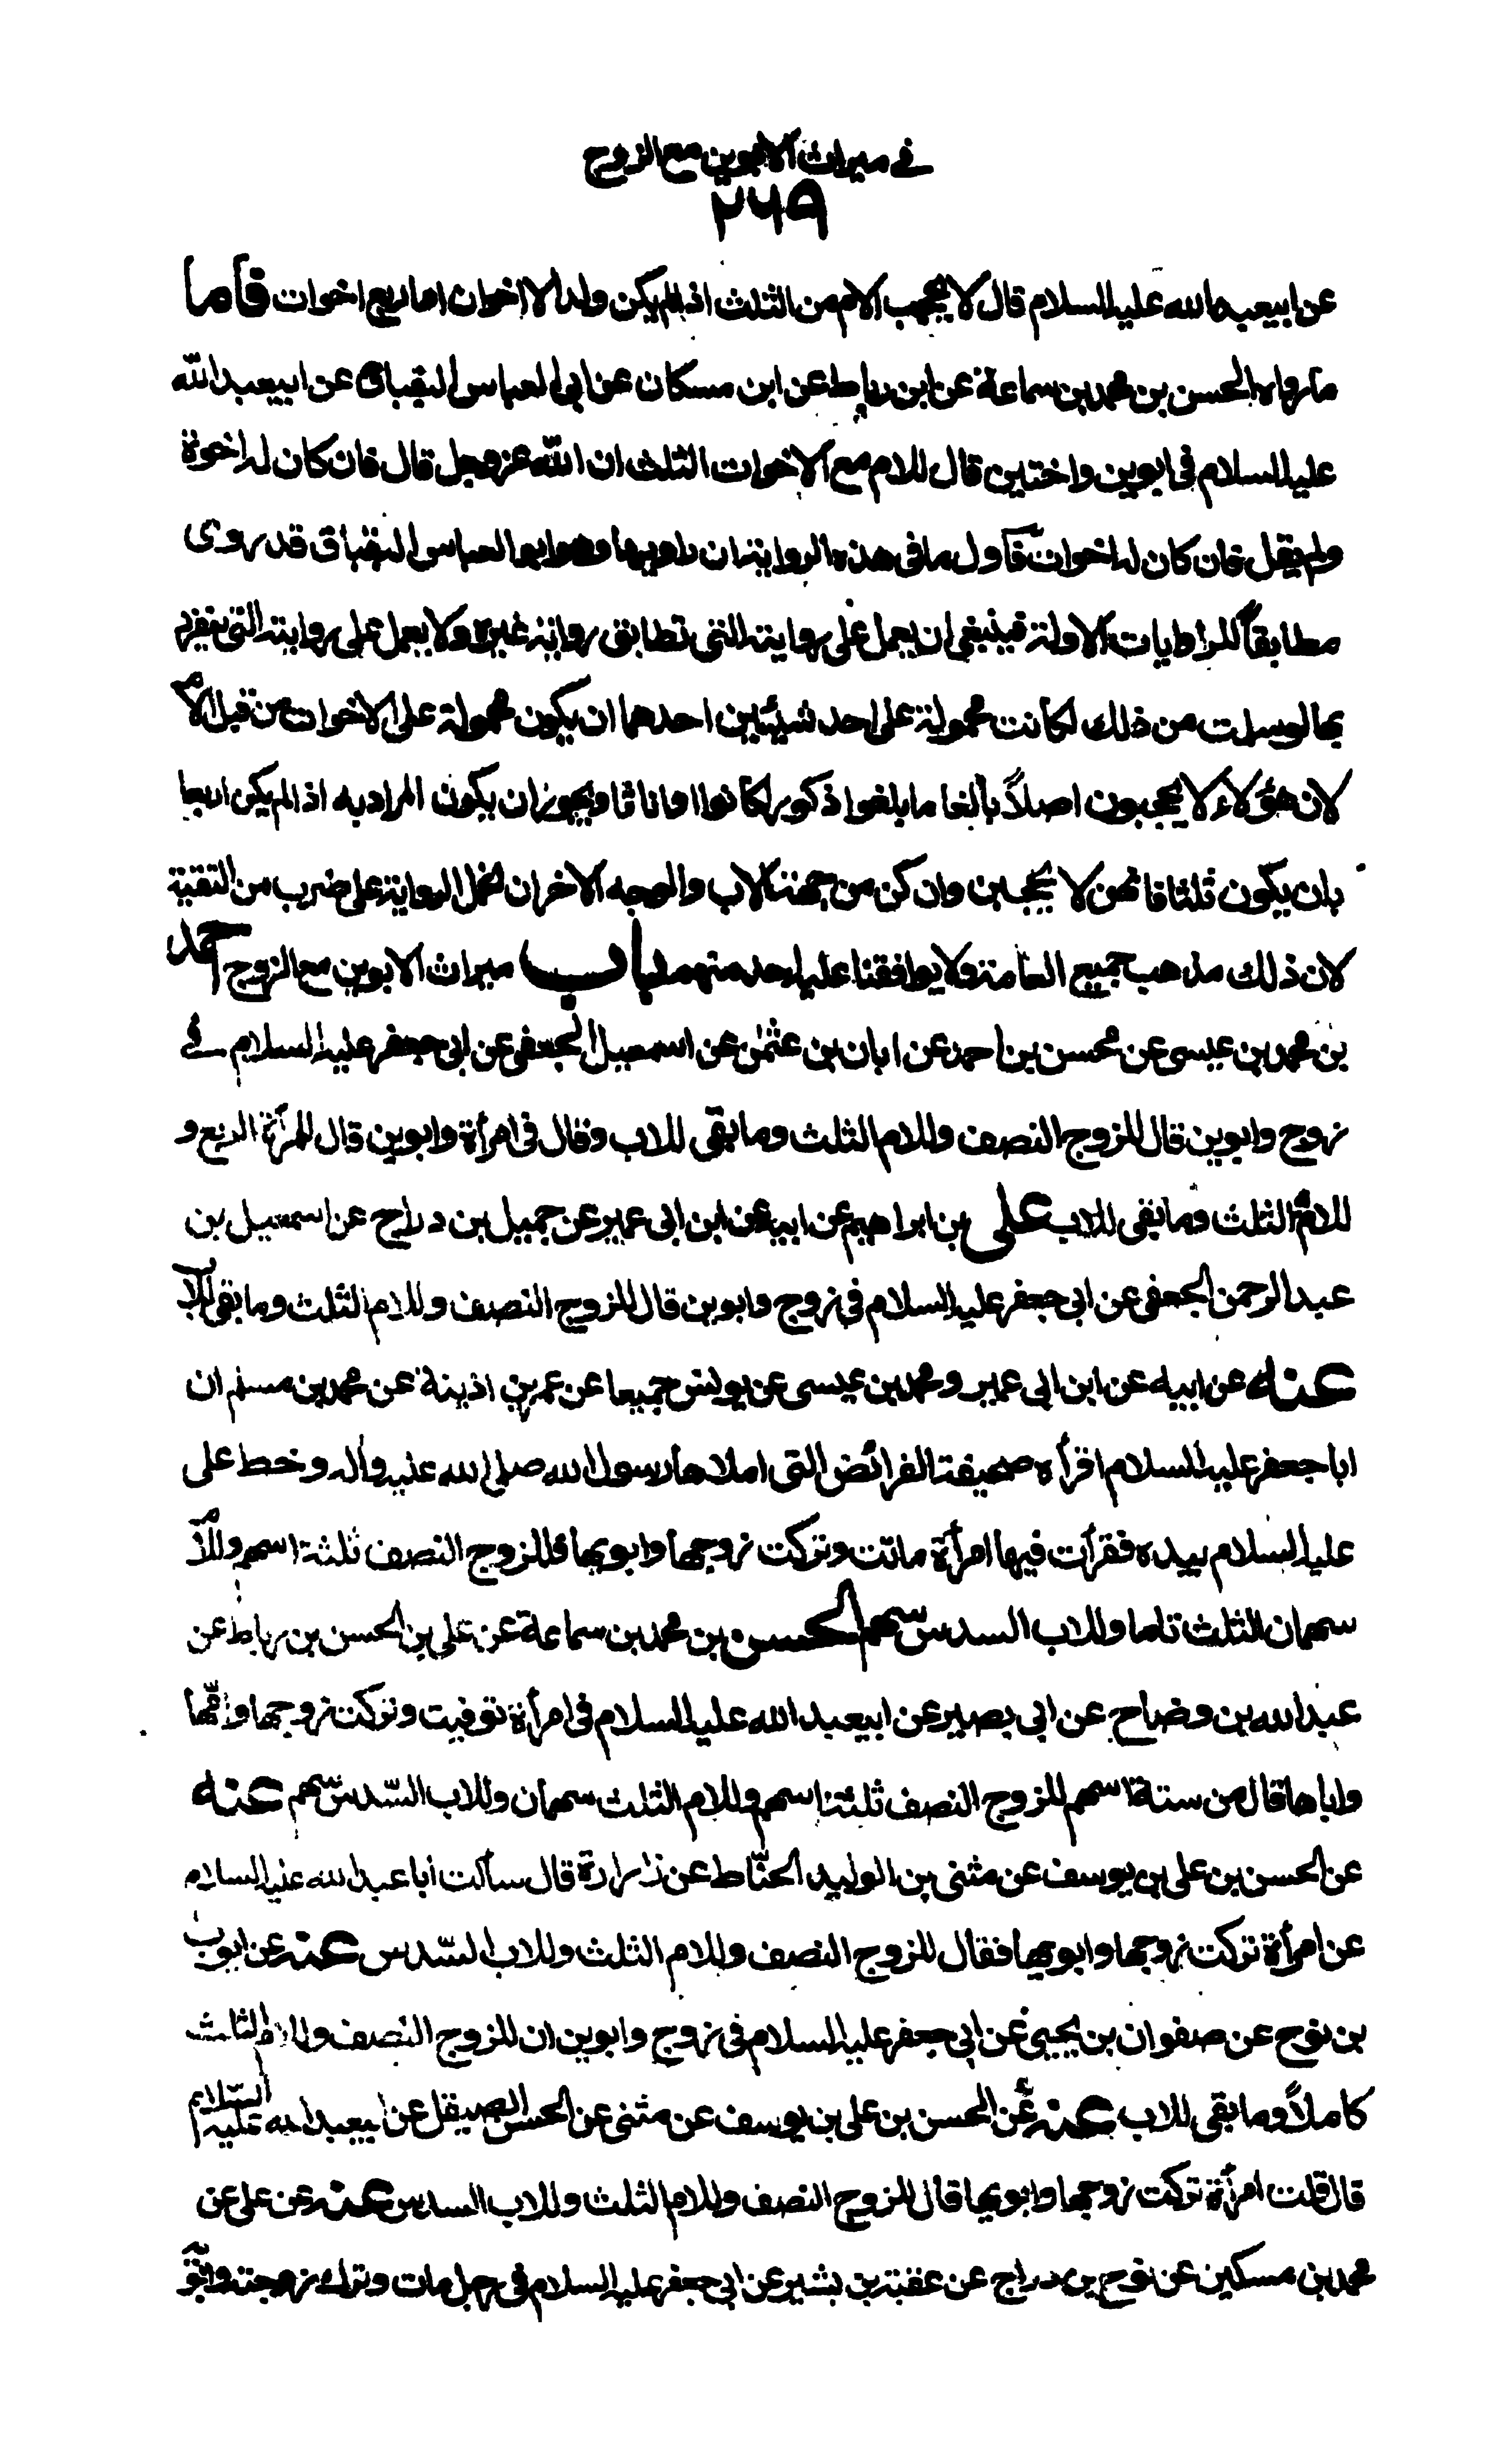 في ميراث الابوين مع الزوج
٢٦٩
عن ابيعبد الله عليه السلام قال لا يحجب الام من الثلث اذا لم يكن ولد الا اخوان او اربع اخوات فاما
ما رواه الحسن بن محمد بن سماعة عن ابن رباط عن ابن مسكان عن ابي العباس البقباق عن ابيعبد الله
عليه السلام في ابوين واختين قال للام مع الاخوات الثلث ان الله عز وجل قال فان كان له اخوة
ولم يقل فان كان له اخوات فاول ما في هذه الرواية ان راويها وهو ابو العباس البقباق قد روى
مطابقاً للروايات الاولة فينبغي ان يعمل على روايته التي تطابق رواية غيره ولا يعمل على روايته التي تفرد
بها لو سلمت من ذلك لكانت محمولة على احد شيئين احدهما ان يكون محمولة على الاخوات من قبل الام
لان هؤلاء لا يحجبون اصلاً بالغا ما بلغوا ذكورا كانوا او اناثا ويجوز ان يكون المراد به اذا لم يكن اربعا
بان يكون ثلثا فانهن لا يحجبن وان كن من جهة الاب والوجه الاخر ان نحمل الرواية على ضرب من التقية
لان ذلك مذهب جميع العامة ولا يوافقنا عليه احد منهم باب ميراث الابوين مع الزوج احمد
بن محمد بن عيسى عن محسن بن احمد عن ابان بن عثمن عن اسمعيل الجعفي عن ابي جعفر عليه السلام في
زوج وابوين قال للزوج النصف وللام الثلث وما بقي للاب وقال في امرأة وابوين قال للمرأة الربع و
للام الثلث وما بقي للاب علي بن ابراهيم عن ابيه عن ابن ابي عمير عن جميل بن دراج عن اسمعيل بن
عبد الرحمن الجعفي عن ابي جعفر عليه السلام في زوج وابوين قال للزوج النصف وللام الثلث وما بقي للاب
عنه عن ابيه عن ابن ابي عمير ومحمد بن عيسى عن يونس جميعا عن عمر بن اذينة عن محمد بن مسلم ان
ابا جعفر عليه السلام اقرأه صحيفة الفرائض التي املاها رسول الله صلى الله عليه واله وخط على
عليه السلام بيده فقرأت فيها امرأة ماتت وتركت زوجها وابويها فللزوج النصف ثلثة اسهم وللام
سهمان الثلث تاما وللاب السدس سهم الحسن بن محمد بن سماعة عن علي بن الحسن بن رباط عن
عبد الله بن وضاح عن ابي بصير عن ابيعبد الله عليه السلام في امرأة توفيت وتركت زوجها وامّها
واباها قال من ستة اسهم للزوج النصف ثلثة اسهم وللام الثلث سهمان وللاب السّدس سهم عنه
عن الحسن بن علي بن يوسف عن مثنى بن الوليد الحنّاط عن زرارة قال سألت ابا عبد الله عليه السلام
عن امرأة تركت زوجها وابويها فقال للزوج النصف وللام الثلث وللاب السّدس عنه عن ايوب
بن نوح عن صفوان بن يحيى عن ابي جعفر عليه السلام في زوج وابوين ان للزوج النصف وللام الثلث
كاملاً وما بقي للاب عنه عن الحسن بن علي بن يوسف عن مثنى عن الحسن الصيقل عن ابيعبد الله عليه السّلام
قال قلت امرأة تركت زوجها وابويها قال للزوج النصف وللام الثلث وللاب السدس عنه عن علي عن
محمد بن مسكين عن نوح بن دراج عن عقبة بن بشير عن ابي جعفر عليه السلام في رجل مات وترك زوجته وابويه